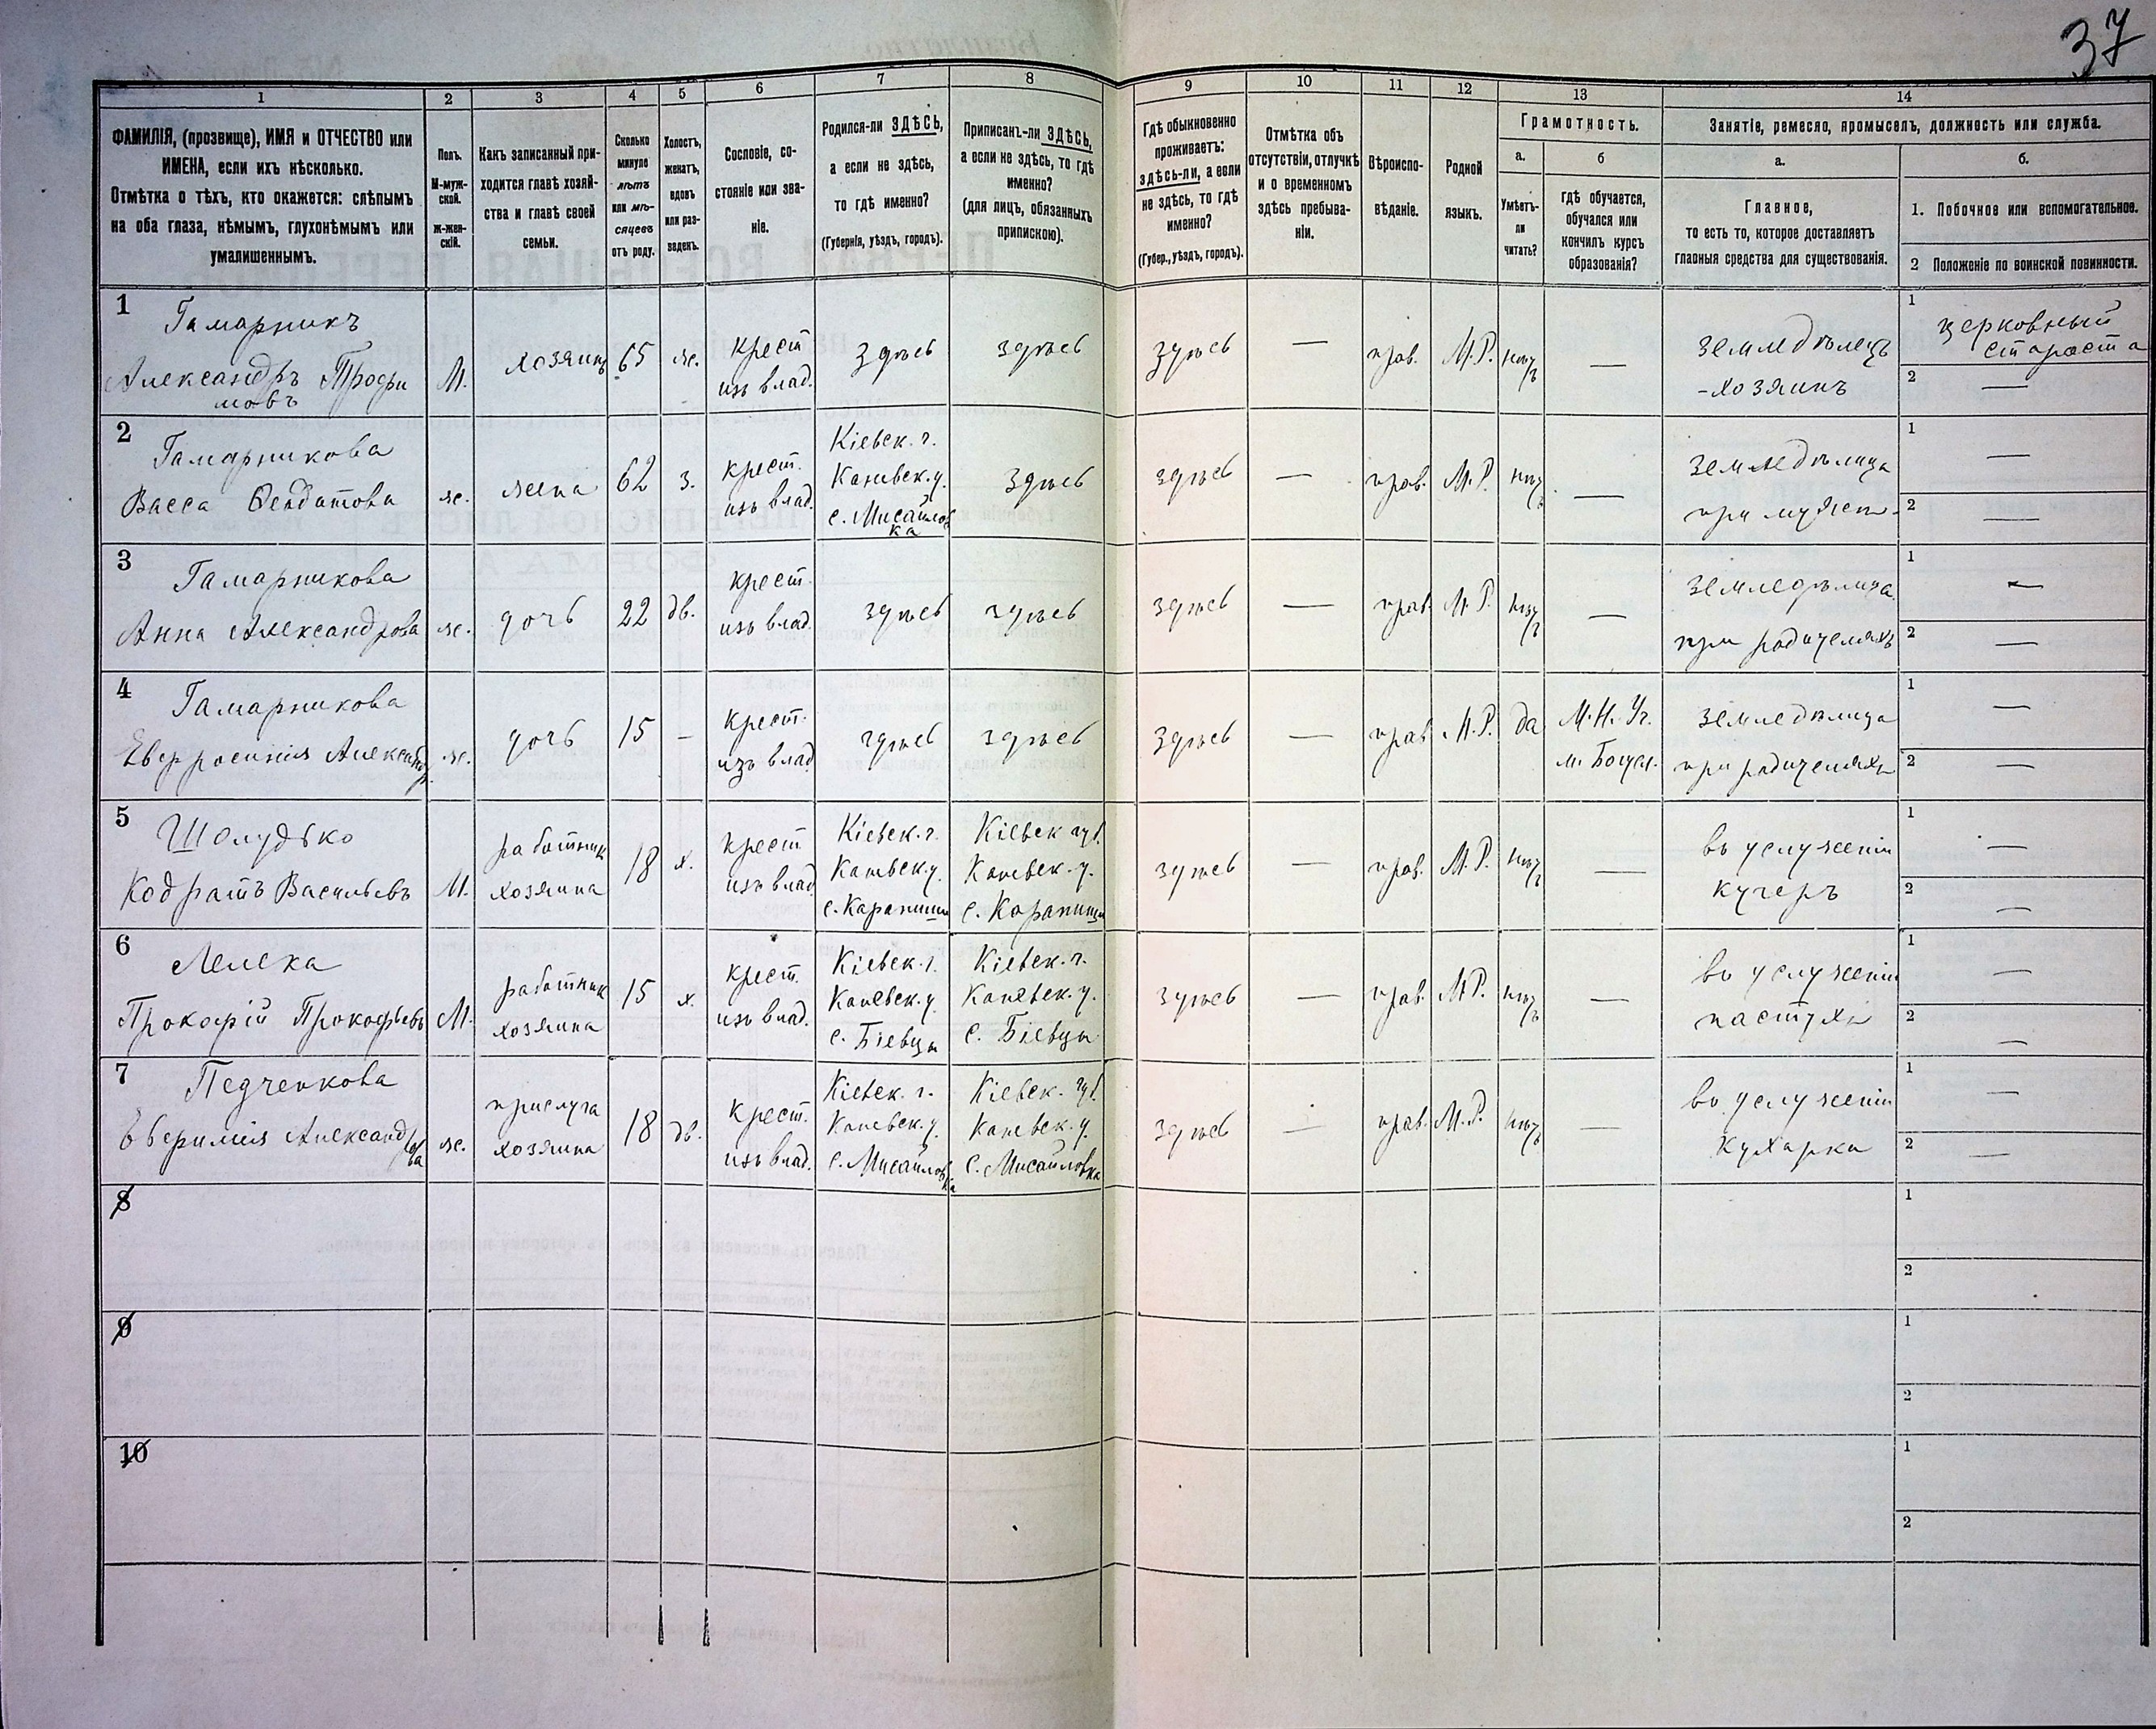 37
1
2
3
4
5
6
7
8
9
10
11
12
13
14
ФАМИЛІЯ, (прозвище), ИМЯ и ОТЧЕСТВО или
ИМЕНА, если ихъ нѣсколько.
Отмѣтка о тѣхъ, кто окажется: слѣпымъ
на оба глаза, нѣмымъ, глухонѣмымъ или
умалишеннымъ.
Полъ.
М-муж-
ской.
ж-жен-
скій.
Какъ записанный при-
ходится главѣ хозяй-
ства и главѣ своей
семьи.
Сколько
минуло
лѣтъ
или мѣ-
сяцевъ
отъ роду.
Холостъ,
женатъ,
вдовъ
или раз-
веденъ.
Сословіе, со-
стояніе или зва-
ніе.
Родился-ли ЗДѢСЬ,
а если не здѣсь,
то гдѣ именно?
(Губернія, уѣздъ, городъ).
Приписанъ-ли ЗДѢСЬ,
а если не здѣсь, то гдѣ
именно?
(для лицъ, обязанныхъ
припискою).
Гдѣ обыкновенно
проживаетъ:
здѣсь-ли, а если
не здѣсь, то гдѣ
именно?
(Губер., уѣздъ, городъ).
Отмѣтка объ
отсутствіи, отлучкѣ
и о временномъ
здѣсь пребыва-
ніи.
Вѣроиспо-
вѣданіе.
Родной
языкъ.
Грамотность.
а.
Умѣетъ-
ли
читать?
б
гдѣ обучается,
обучался или
кончилъ курсъ
образованія?
Занятіе, ремесло, промыселъ, должность или служба.
а.
Главное,
то есть то, которое доставляетъ
главныя средства для существованія.
б.
1. Побочное или вспомогательное.
2 Положеніе по воинской повинности.
1
Гамарникъ
Александръ Трофи
мовъ
М.
хозяинъ
65
ж.
крест
изъ влад.
здѣсь
здѣсь
здѣсь
—
прав.
М.Р.
нѣтъ
—
земледѣлецъ
-хозяинъ
1
церковный
староста
2
—
2
Гамарникова
Васса Феодотова
ж.
жена
62
з.
крест.
изъ влад.
Кіевск. г.
Каневск. у.
с. Мисайлов
ка
здѣсь
здѣсь
—
прав.
М.Р.
нѣтъ
—
земледѣлица
при муже
1
—
2
—
3
Гамарникова
Анна Александрова
ж.
дочь
22
дв.
крест.
изъ влад.
здѣсь
здѣсь
здѣсь
—
прав.
М.Р.
нѣтъ
—
земледѣлица
при родителяхъ
1
—
2
—
4
Гамарникова
Евфросинія Александр.
ж.
дочь
15
—
крест.
изъ влад.
здѣсь
здѣсь
здѣсь
—
прав.
М.Р.
да
М.Н. Уч.
м. Богусл.
земледѣлица
при родителяхъ
1
—
2
—
5
Шолудько
Кодратъ Васильевъ
М.
работник
хозяина
18
х.
крест
изъ влад
Кіевск. г.
Каневск. у.
с. Карапиши
Кіевск губ.
Каневск. у.
с. Карапиши
здѣсь
—
прав.
М.Р.
нѣтъ
—
въ услуженіи
кучеръ
1
—
2
—
6
Лелека
Прокофій Прокофьевъ
М.
работник
хозяина
15
х.
крест.
изъ влад.
Кіевск. г.
Каневск. у.
с. Біевцы
Кіевск. г.
Каневск. у.
с. Біевцы
здѣсь
—
прав.
М.Р.
нѣтъ
—
въ услуженіи
пастухъ
1
—
2
—
7
Педченкова
Евфимія Александрова
ж.
прислуга
хозяина
18
дв.
крест.
изъ влад.
Кіевск. г.
Каневск. у.
с. Мисайловка
Кіевск. губ.
Каневск. у.
с. Мисайловка
здѣсь
—
прав.
М.Р.
нѣтъ
—
въ услуженіи
кухарка
1
—
2
—
8
1
2
9
1
2
10
1
2